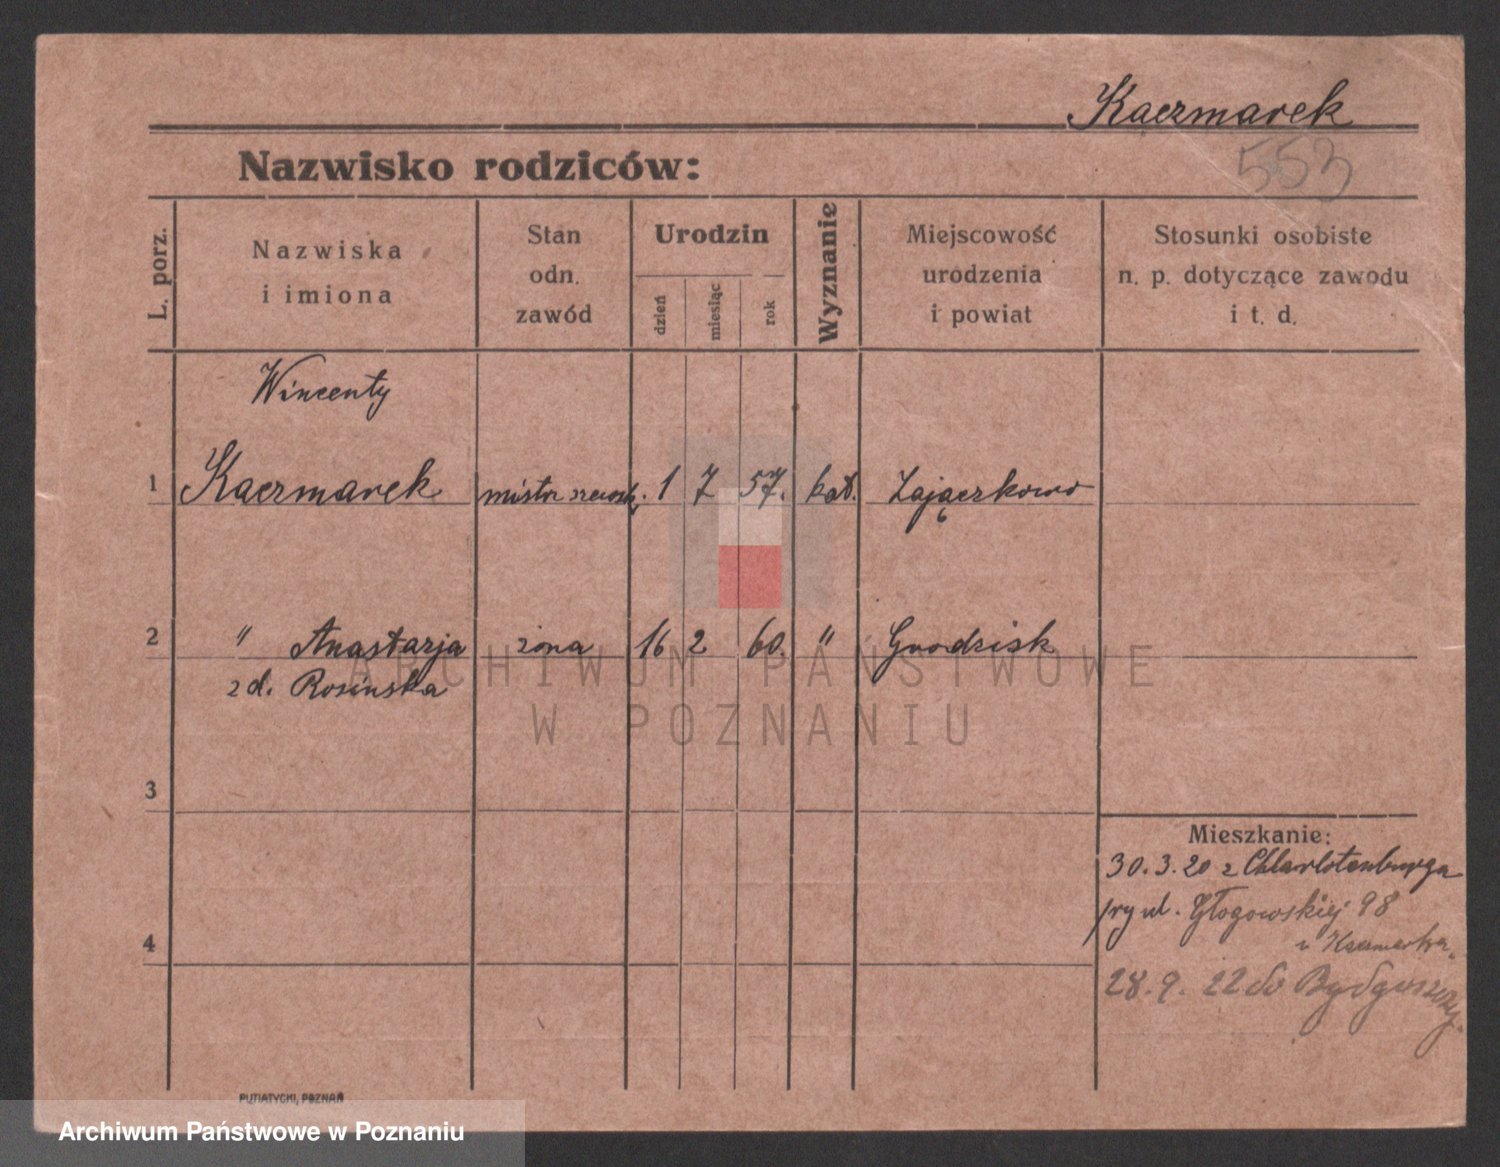 Kaczmarek
553
Nazwisko rodziców:
L. porz.
Nazwiska
i imiona
Stan
odn.
zawód
Urodzin
dzień
miesiąc
rok
Wyznanie
Miejscowość
urodzenia
i powiat
Stosunki osobiste
n. p. dotyczące zawodu
i t. d.
Wincenty
1 Kaczmarek mistrz szewsk. 1 7 57. kat. Zajączkowo
2 " Anastazja żona 16 2 60. " Grodzisk
z d. Rosinska
ARCHIWUM PAŃSTWOWE
W POZNANIU
3
Mieszkanie:
30.3.20 z Chlarlotenburga
przy ul. Głogowskiej 98
u Kaczmarka.
4
28.9.22 do Bydgoszczy.
PUTIATYCKI, POZNAŃ
Archiwum Państwowe w Poznaniu